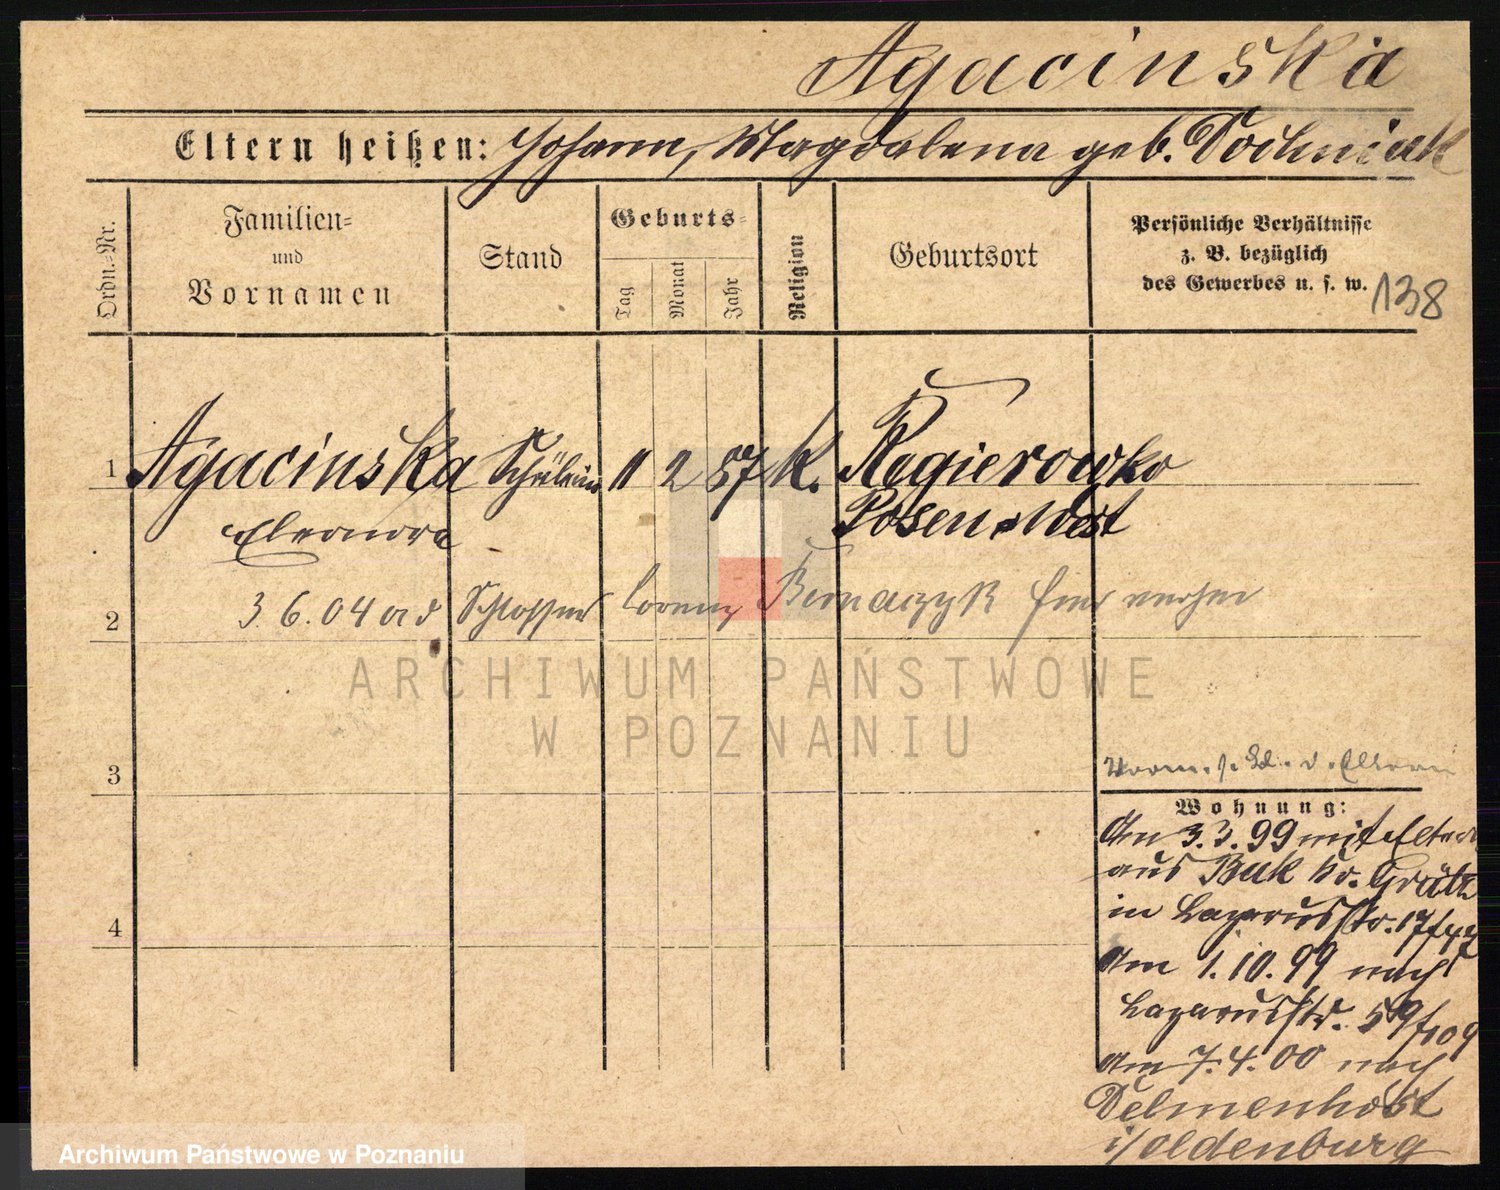 Agacinska
Eltern heißen: Johann, Magdalena geb. Dochniak
Ordn.-Nr.
Familien-
und
Vornamen
Stand
Geburts-
Tag
Monat
Jahr
Religion
Geburtsort
Persönliche Verhältnisse
z. B. bezüglich
des Gewerbes u. s. w.
138
1 Agacinska Schülerin 11 2 87 K. Regierowko
Eleonora Posen-West
2 3.6.04 a d Schlosser Lorenz Bernaczyk hier
3
4
d. Eltern
Wohnung:
Am 3.3.99 mit Eltern
aus Buk Kr. Grätz
in Lazarusstr. 17/
Am 1.10.99 nach
Lazarusstr. 59/109
Am 7.4.00 nach
Delmenhorst
i/Oldenburg
ARCHIWUM PAŃSTWOWE
W POZNANIU
Archiwum Państwowe w Poznaniu